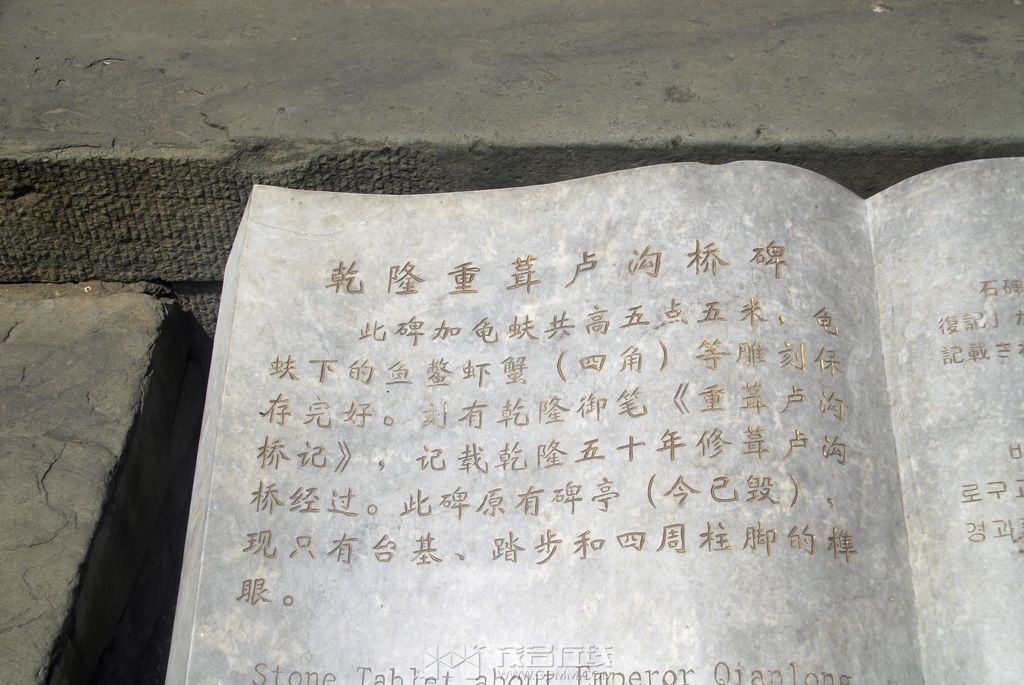 乾隆重葺卢沟桥碑
此碑加龟蚨共高五点五米，龟
蚨下的鱼鳌虾蟹（四角）等雕刻保
存完好。刻有乾隆御笔《重葺卢沟
桥记》，记载乾隆五十年修葺卢沟
桥经过。此碑原有碑亭（今已毁），
现只有台基、踏步和四周柱脚的榫
眼。
Stone Tablet about Emperor Qianlong
石碑
復記」
記載さ
로구교
경과
茂名在线